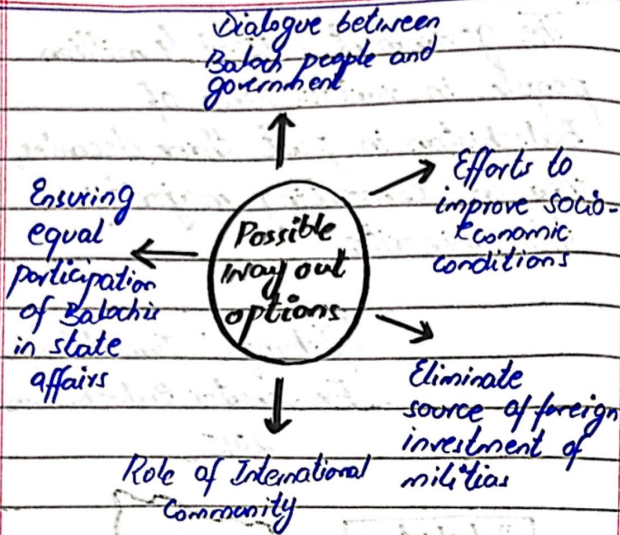 Dialogue between
Baloch people and
government
Efforts to
improve socio-
Economic
conditions
Ensuring
equal
participation
of Balochis
in state
affairs
Possible
way out
options
Eliminate
source of foreign
investment of
militias
Role of International
Community